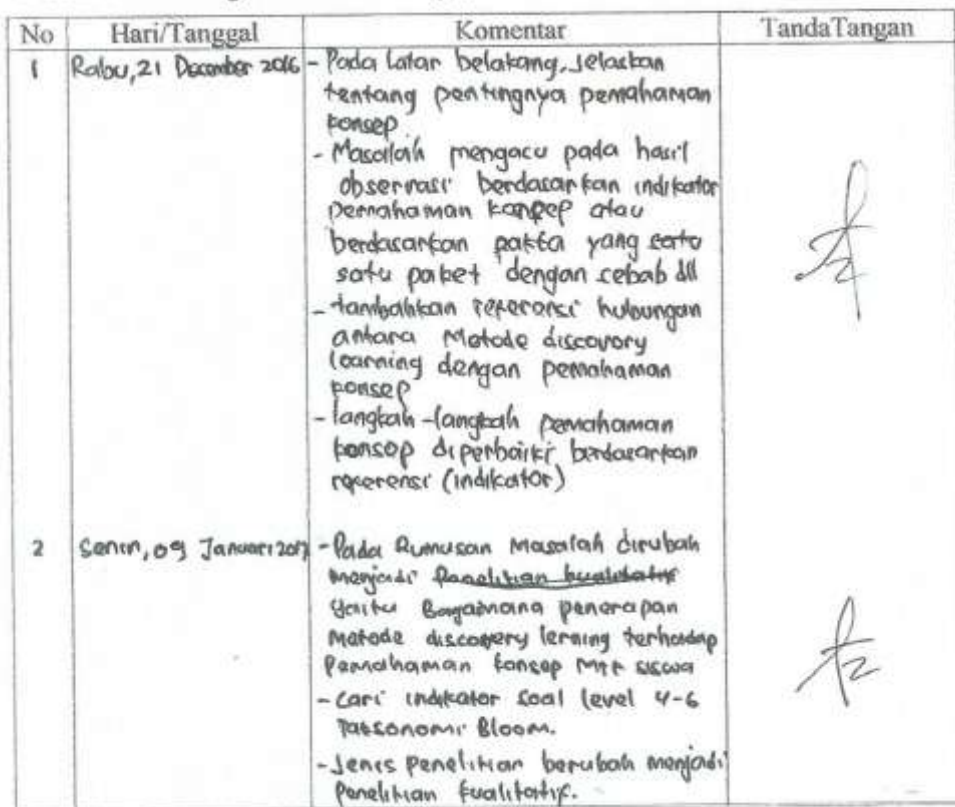 No Hari/Tanggal Komentar TandaTangan
1 Rabu, 21 December 2016 - Pada latar belakang, jelaskan
tentang pentingnya pemahaman
konsep
- Masalah mengacu pada hasil
observasi berdasarkan indikator
pemahaman konsep atau
berdasarkan pakta yang satu
satu paket dengan sebab dll
- tambahkan referensi hubungan
antara Metode discovery
learning dengan pemahaman
konsep
- langkah-langkah pemahaman
konsep diperbaiki berdasarkan
referensi (indikator)
2 Senin, 09 Januari 2017 - Pada Rumusan Masalah dirubah
menjadi Penelitian kualitatif
yaitu Bagaimana penerapan
Metode discovery lerning terhadap
Pemahaman konsep MTK siswa
- Cari indikator soal level 4-6
Taksonomi Bloom.
- Jenis Penelitian berubah menjadi
Penelitian kualitatif.